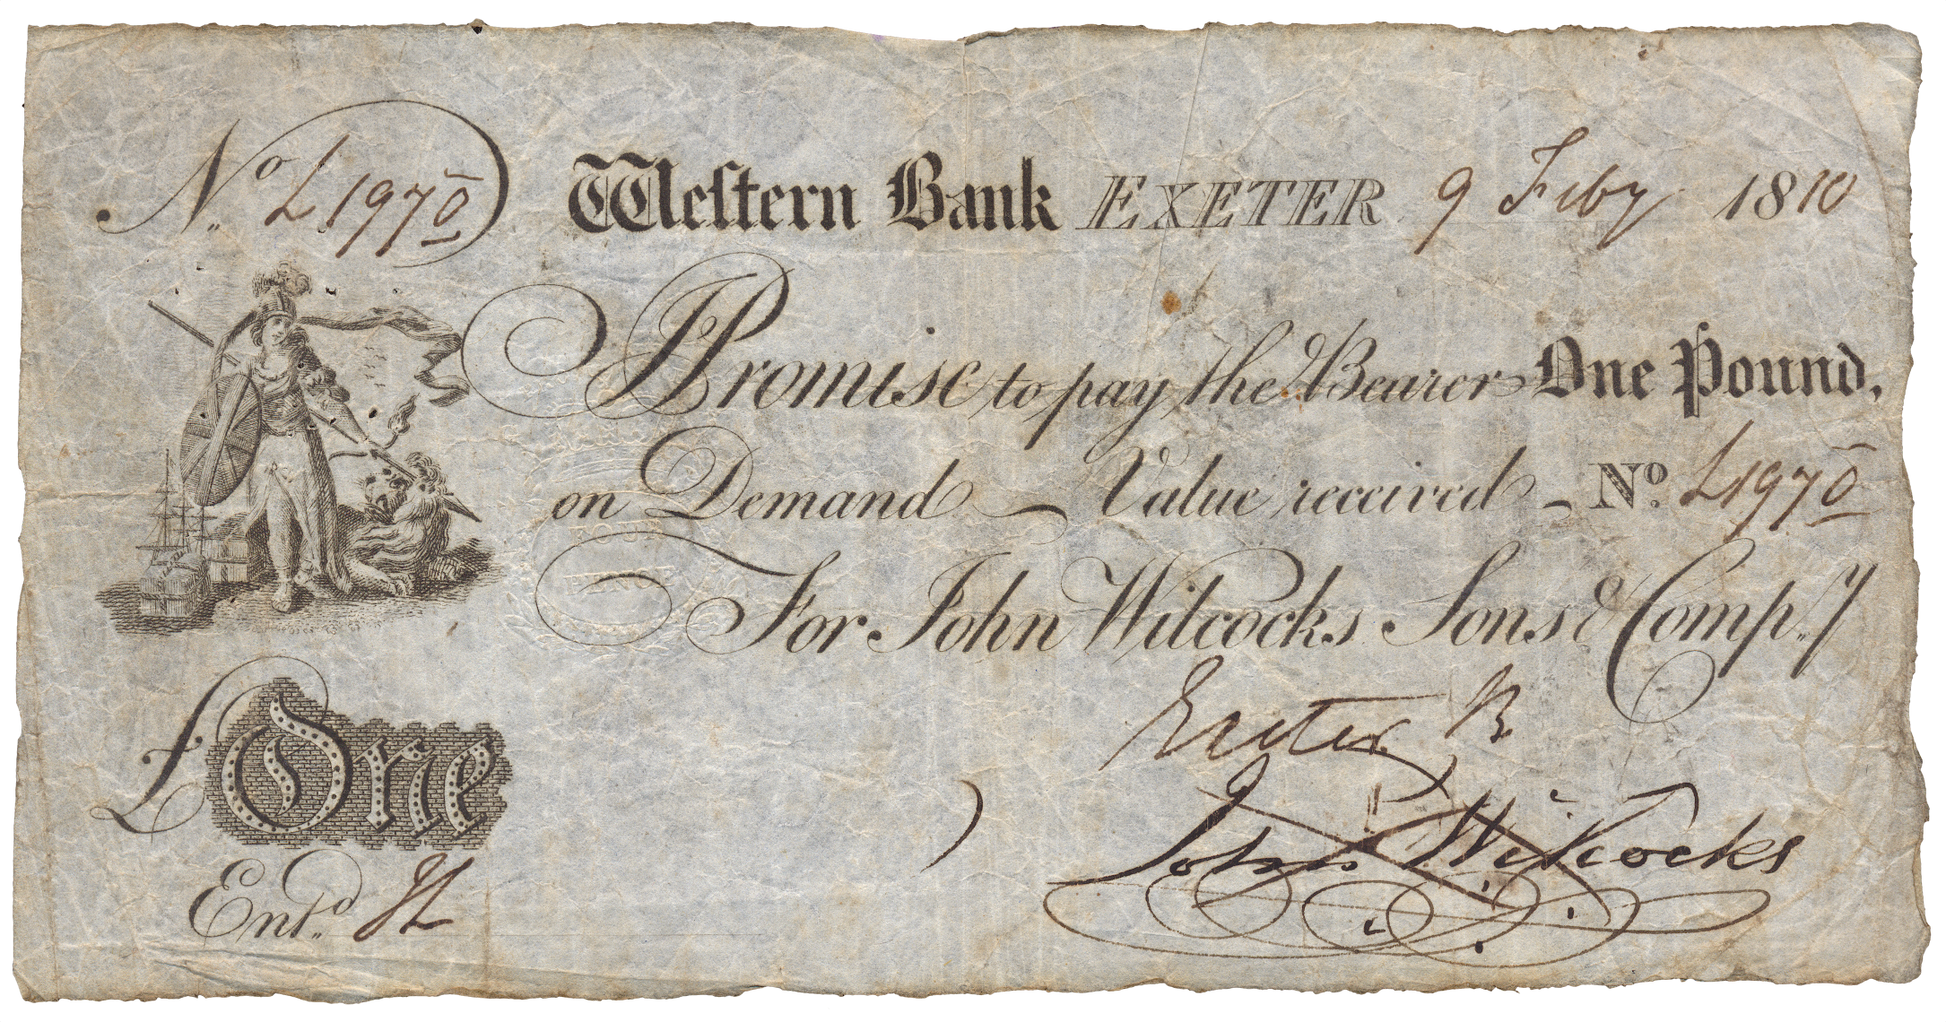 No. L1970 Weſtern Bank EXETER 9 Feby 1810
I Promise to pay the Bearer One Pound,
on Demand — Value received — No. L1970
For John Wilcocks Sons & Comp.y
£One
Exeter B
John Wilcocks
Ent.d